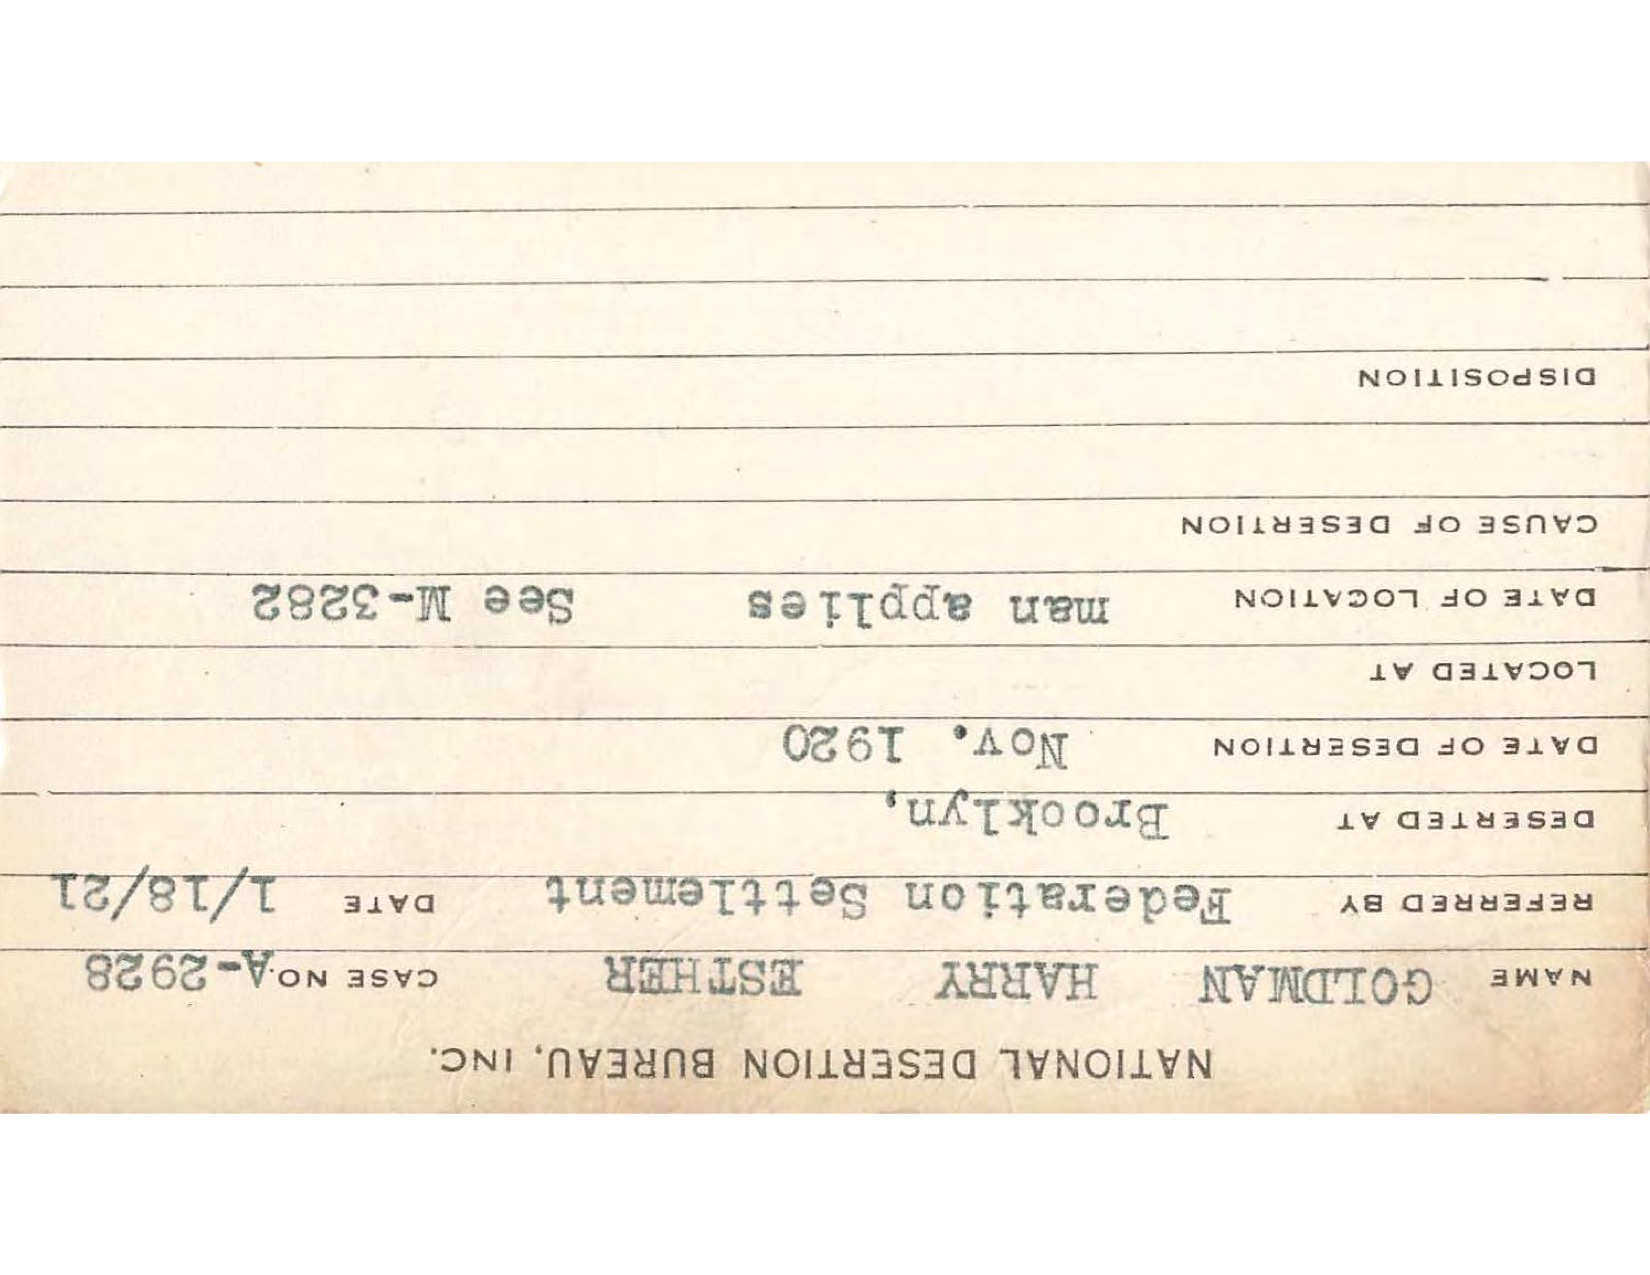 NATIONAL DESERTION BUREAU, INC.
NAME GOLDMAN HARRY ESTHER CASE NO. A-2928
REFERRED BY Federation Settlement DATE 1/18/21
DESERTED AT Brooklyn,
DATE OF DESERTION Nov. 1920
LOCATED AT
DATE OF LOCATION man applies See M-3282
CAUSE OF DESERTION
DISPOSITION